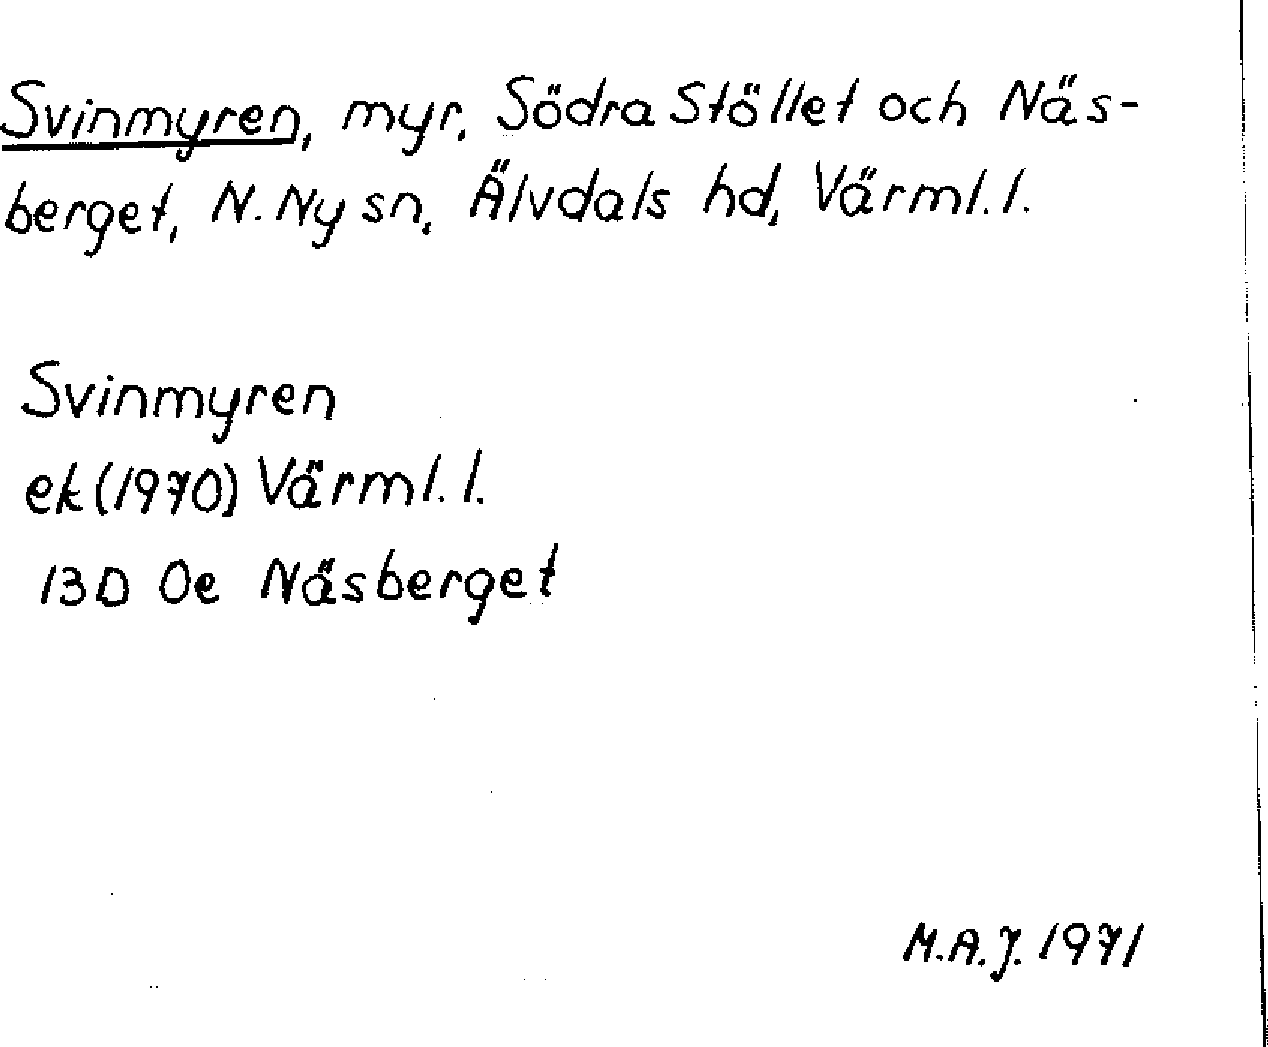 Svinmyren, myr, Södra Stöllet och Näs-
berget, N. Ny sn, Älvdals hd, Värml. l.
Svinmyren
ek (1970) Värml. l.
13D 0e Näsberget
M.A.J. 1971